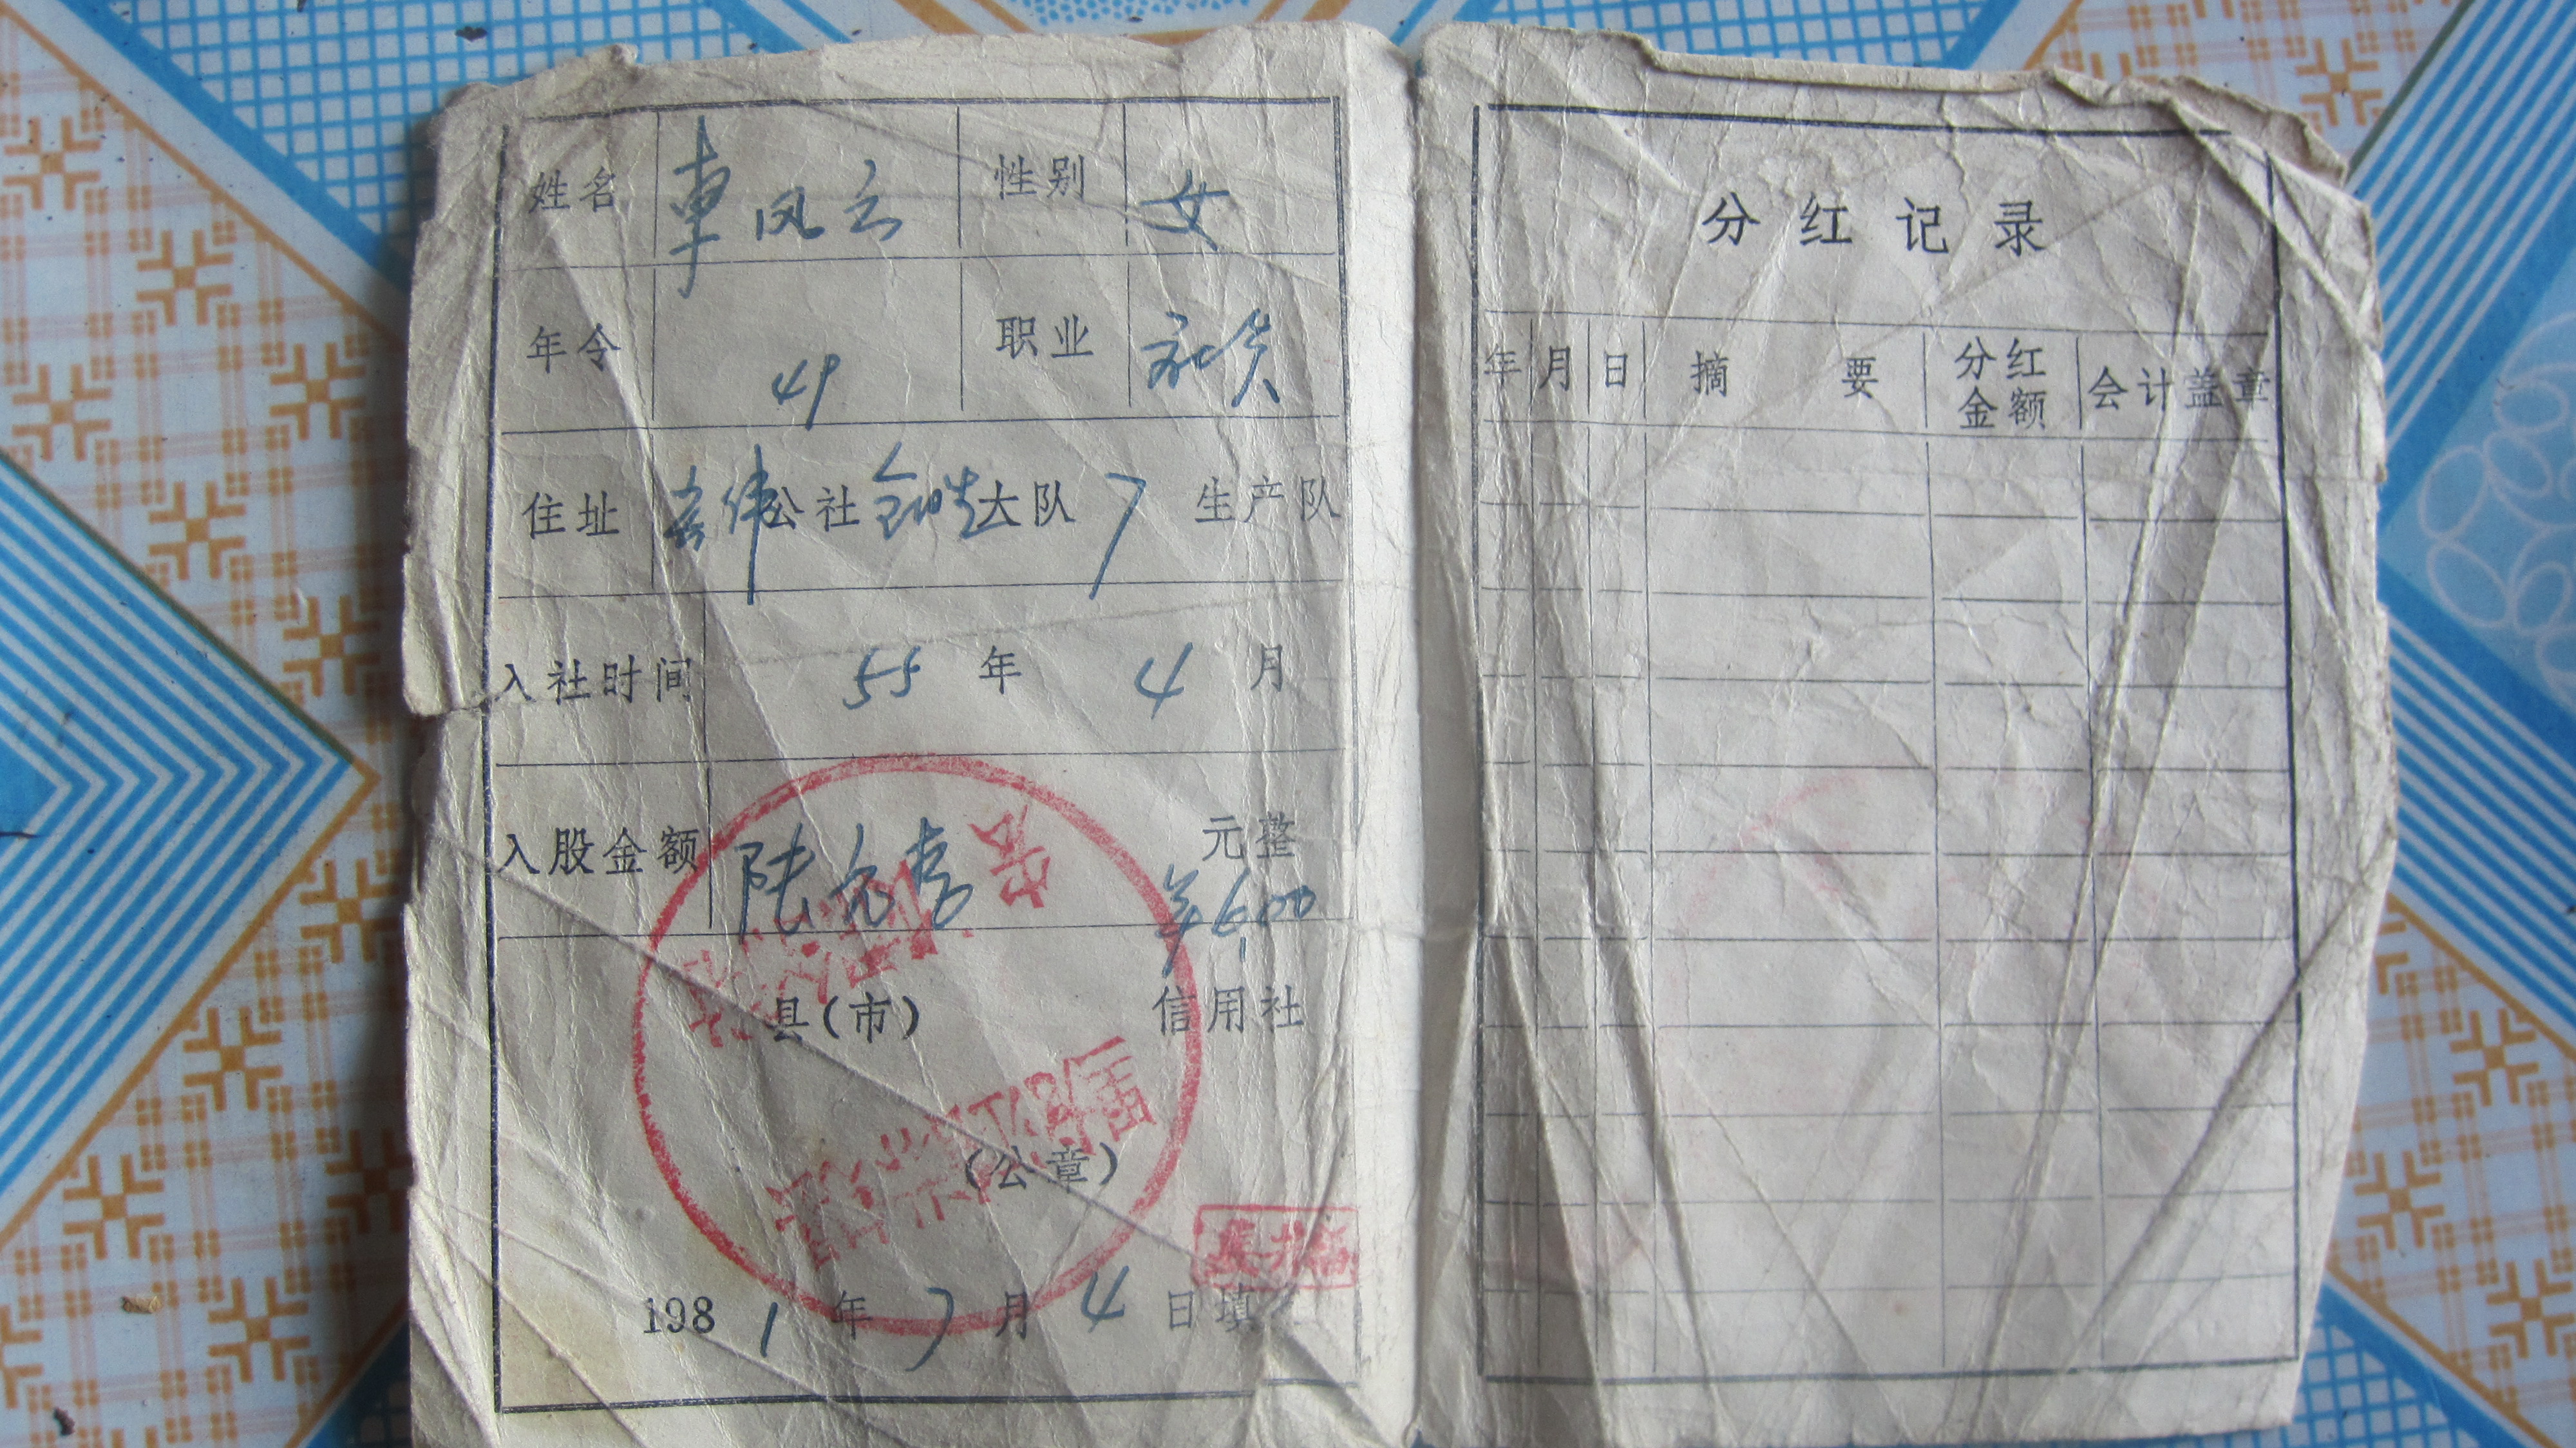 姓名 車凤云 性别 女
年令 49 职业 社员
住址 公社 大队 7 生产队
入社时间 55 年 4 月
入股金额 陆元李 元整
¥600
县(市) 信用社
(公章)
1981 年 7 月 4 日填
分红记录
年 月 日 摘要 分红金额 会计盖章